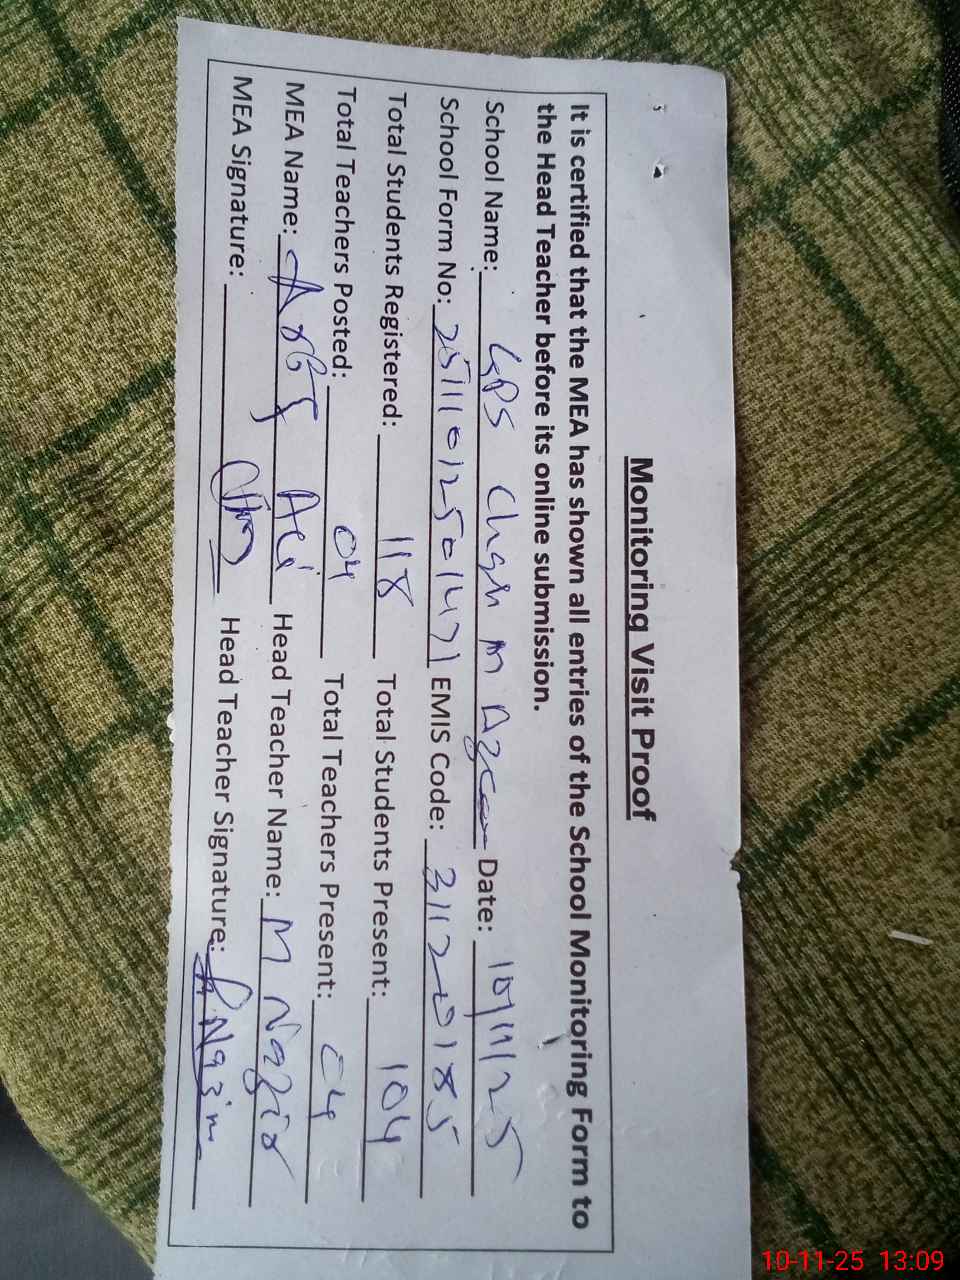 Monitoring Visit Proof
It is certified that the MEA has shown all entries of the School Monitoring Form to
the Head Teacher before its online submission.
School Name: GPS Chan M Azeem Date: 10/11/25
School Form No: 25111012501471 EMIS Code: 31120185
Total Students Registered: 118 Total Students Present: 104
Total Teachers Posted: 04 Total Teachers Present: 04
MEA Name: Ali Head Teacher Name: M Nazir
MEA Signature: Head Teacher Signature:
10-11-25 13:09